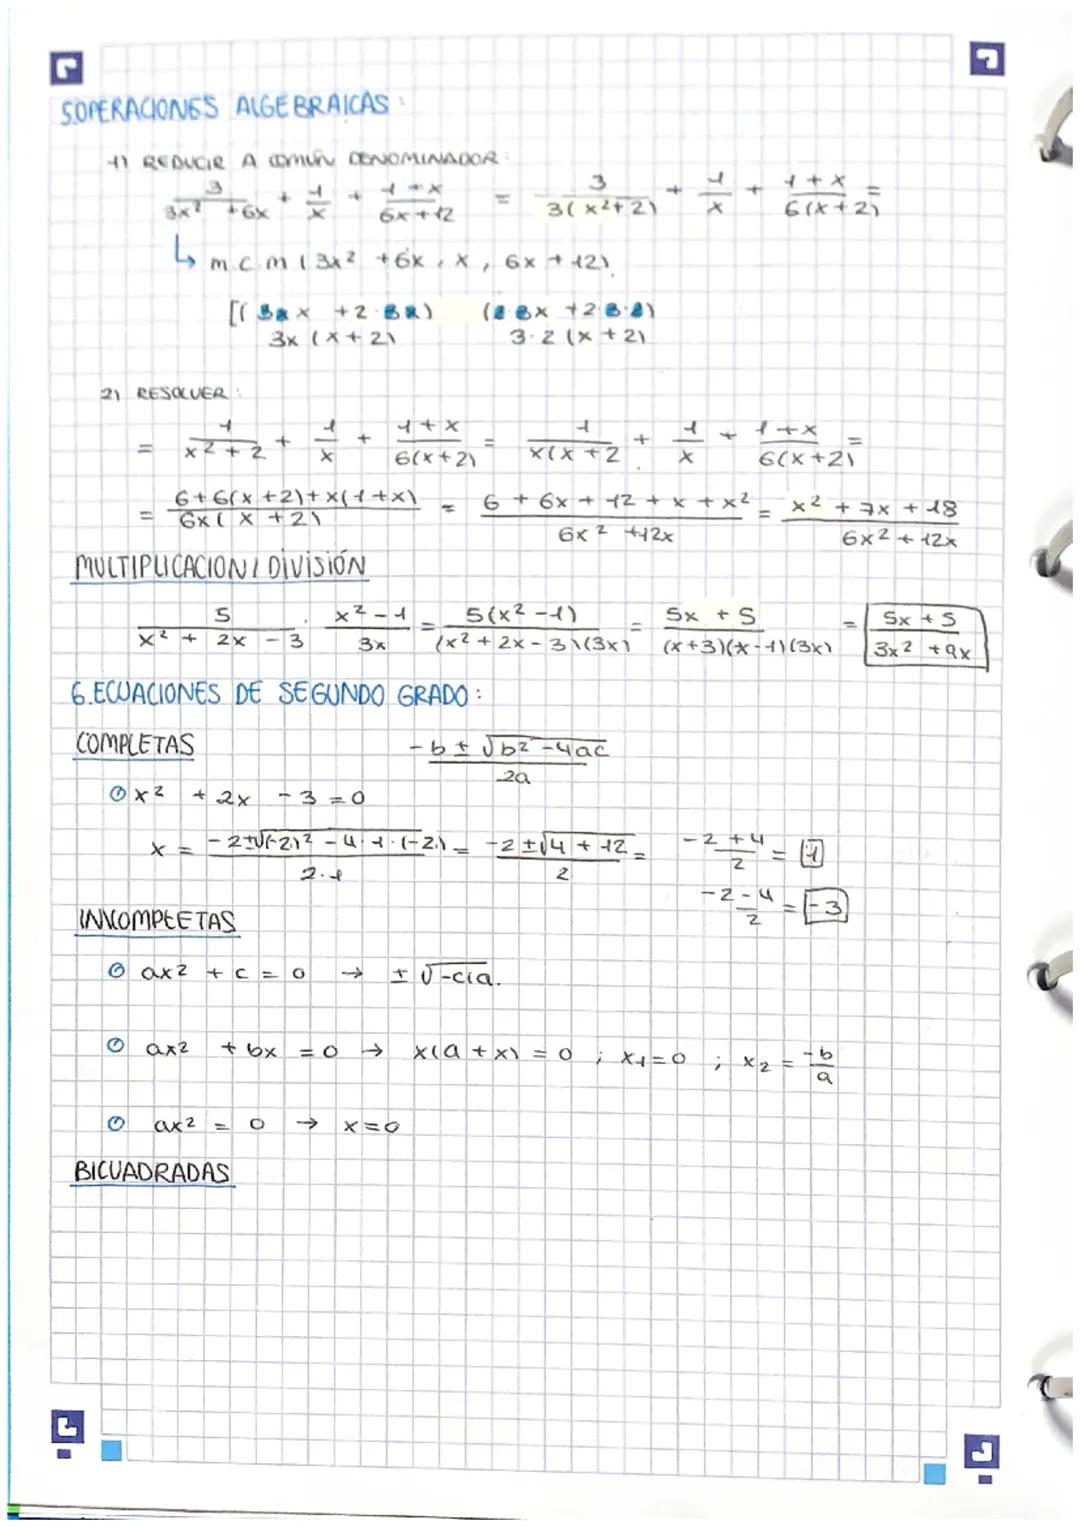 5.OPERACIONES ALGEBRAICAS:
1) REDUCIR A COMÚN DENOMINADOR:
3/(3x² + 6x) + 1/x + (1+x)/(6x+12) = 3/(3(x²+2)) + 1/x + (1+x)/(6(x+2)) =
↳ m.c.m (3x² + 6x, x, 6x + 12)
[(3x x + 2·3x) (2·3x + 2·3·2)
3x (x+2) 3·2 (x+2)
2) RESOLVER:
= 1/(x²+2) + 1/x + (1+x)/(6(x+2)) = 1/(x(x+2) + 1/x + (1+x)/(6(x+2)) =
= (6+6(x+2)+x(1+x))/(6x(x+2)) = (6 + 6x + 12 + x + x²)/(6x² + 12x) = (x² + 7x + 18)/(6x² + 12x)
MULTIPLICACION / DIVISIÓN
5/(x² + 2x - 3) · (x² - 1)/(3x) = 5(x² - 1)/((x² + 2x - 3)(3x)) = (5x + 5)/((x+3)(x-1)(3x)) = (5x + 5)/(3x² + 9x)
6.ECUACIONES DE SEGUNDO GRADO:
COMPLETAS (-b ± √(b² - 4ac))/2a
x² + 2x - 3 = 0
x = (-2±√((-2)² - 4·1·(-2)))/(2·1) = (-2 ± √(4 + 12))/2 = (-2+4)/2 = 1
(-2-4)/2 = -3
INKOMPLETAS
ax² + c = 0 → ± √-c/a.
ax² + bx = 0 → x(a + x) = 0 ; x1 = 0 ; x2 = -b/a
ax² = 0 → x = 0
BICUADRADAS